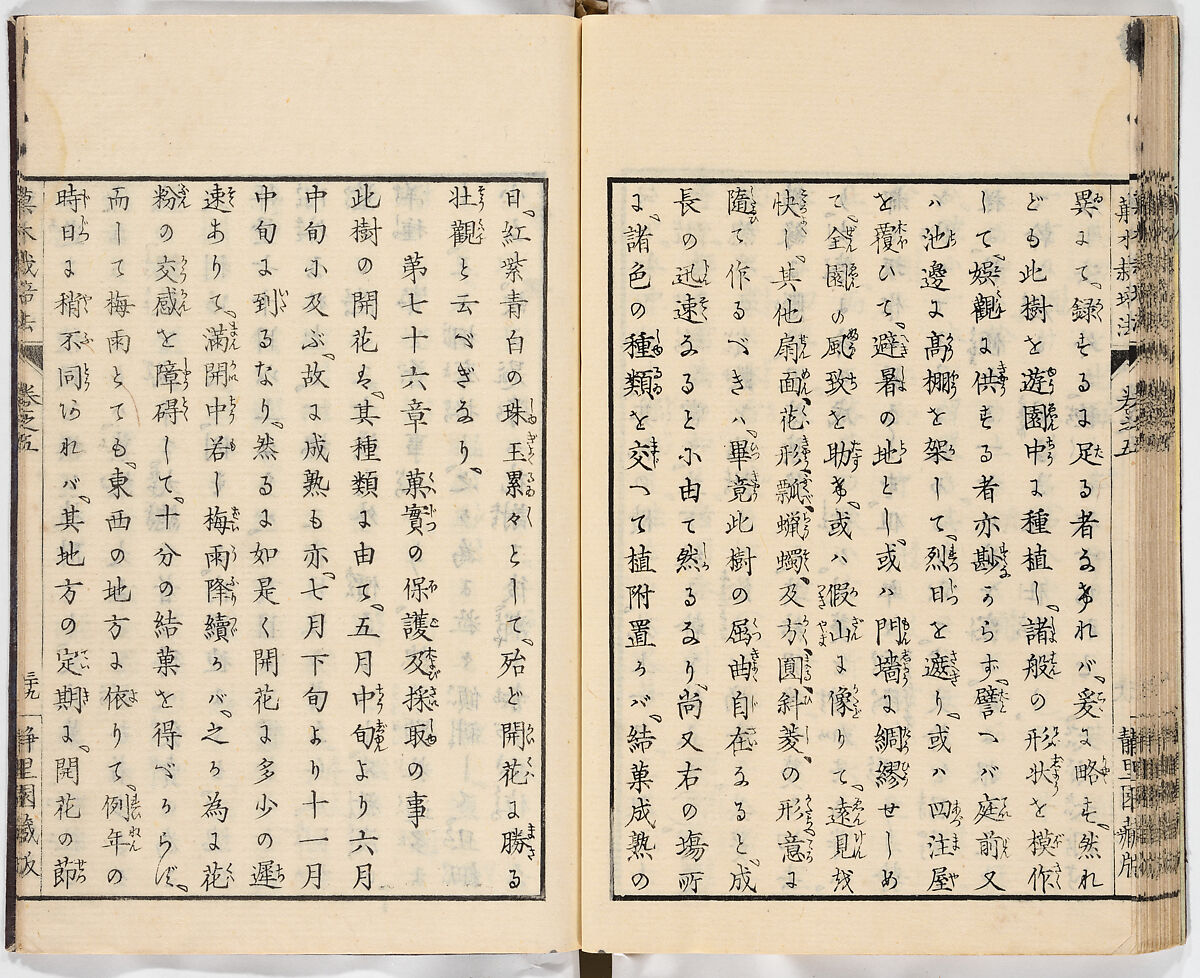 異にて、録するに足る者なければ、爰に略す、然れ
ども此樹を遊園中に種植し、諸般の形状を模作
して、娯觀に供する者亦尠からず、譬へば庭前又
ハ池邊に高棚を架して、烈日を遮り、或ハ四注屋
を覆ひて、避暑の地とし、或ハ門墻に綢繆せしめ
て、全園の風致を助け、或ハ假山に像りて、遠見を
快し、其他扇面、花形、瓢、蝋蠋、及方圓斜菱の形、意に
隨て作るべきハ、畢竟此樹の屈曲自在なると、成
長の迅速なるとに由て然るなり、尚又右の塲所
に、諸色の種類を交へて植附置かバ、結菓成熟の
日、紅紫青白の珠玉累々として、殆ど開花に勝る
壮觀と云べきなり、
第七十六章 菓實の保護及採取の事
此樹の開花は、其種類に由て、五月中旬より六月
中旬に及ぶ、故に成熟も亦、七月下旬より十一月
中旬に到るなり、然るに如是く開花に多少の遲
速ありて、滿開中若し梅雨降續かバ、之が為に花
粉の交感を障碍して、十分の結菓を得べからず、
而して梅雨とても、東西の地方に依りて、例年の
時日に稍不同あれバ、其地方の定期に、開花の節
菓木栽培法
卷之五
三十九
静里園藏版